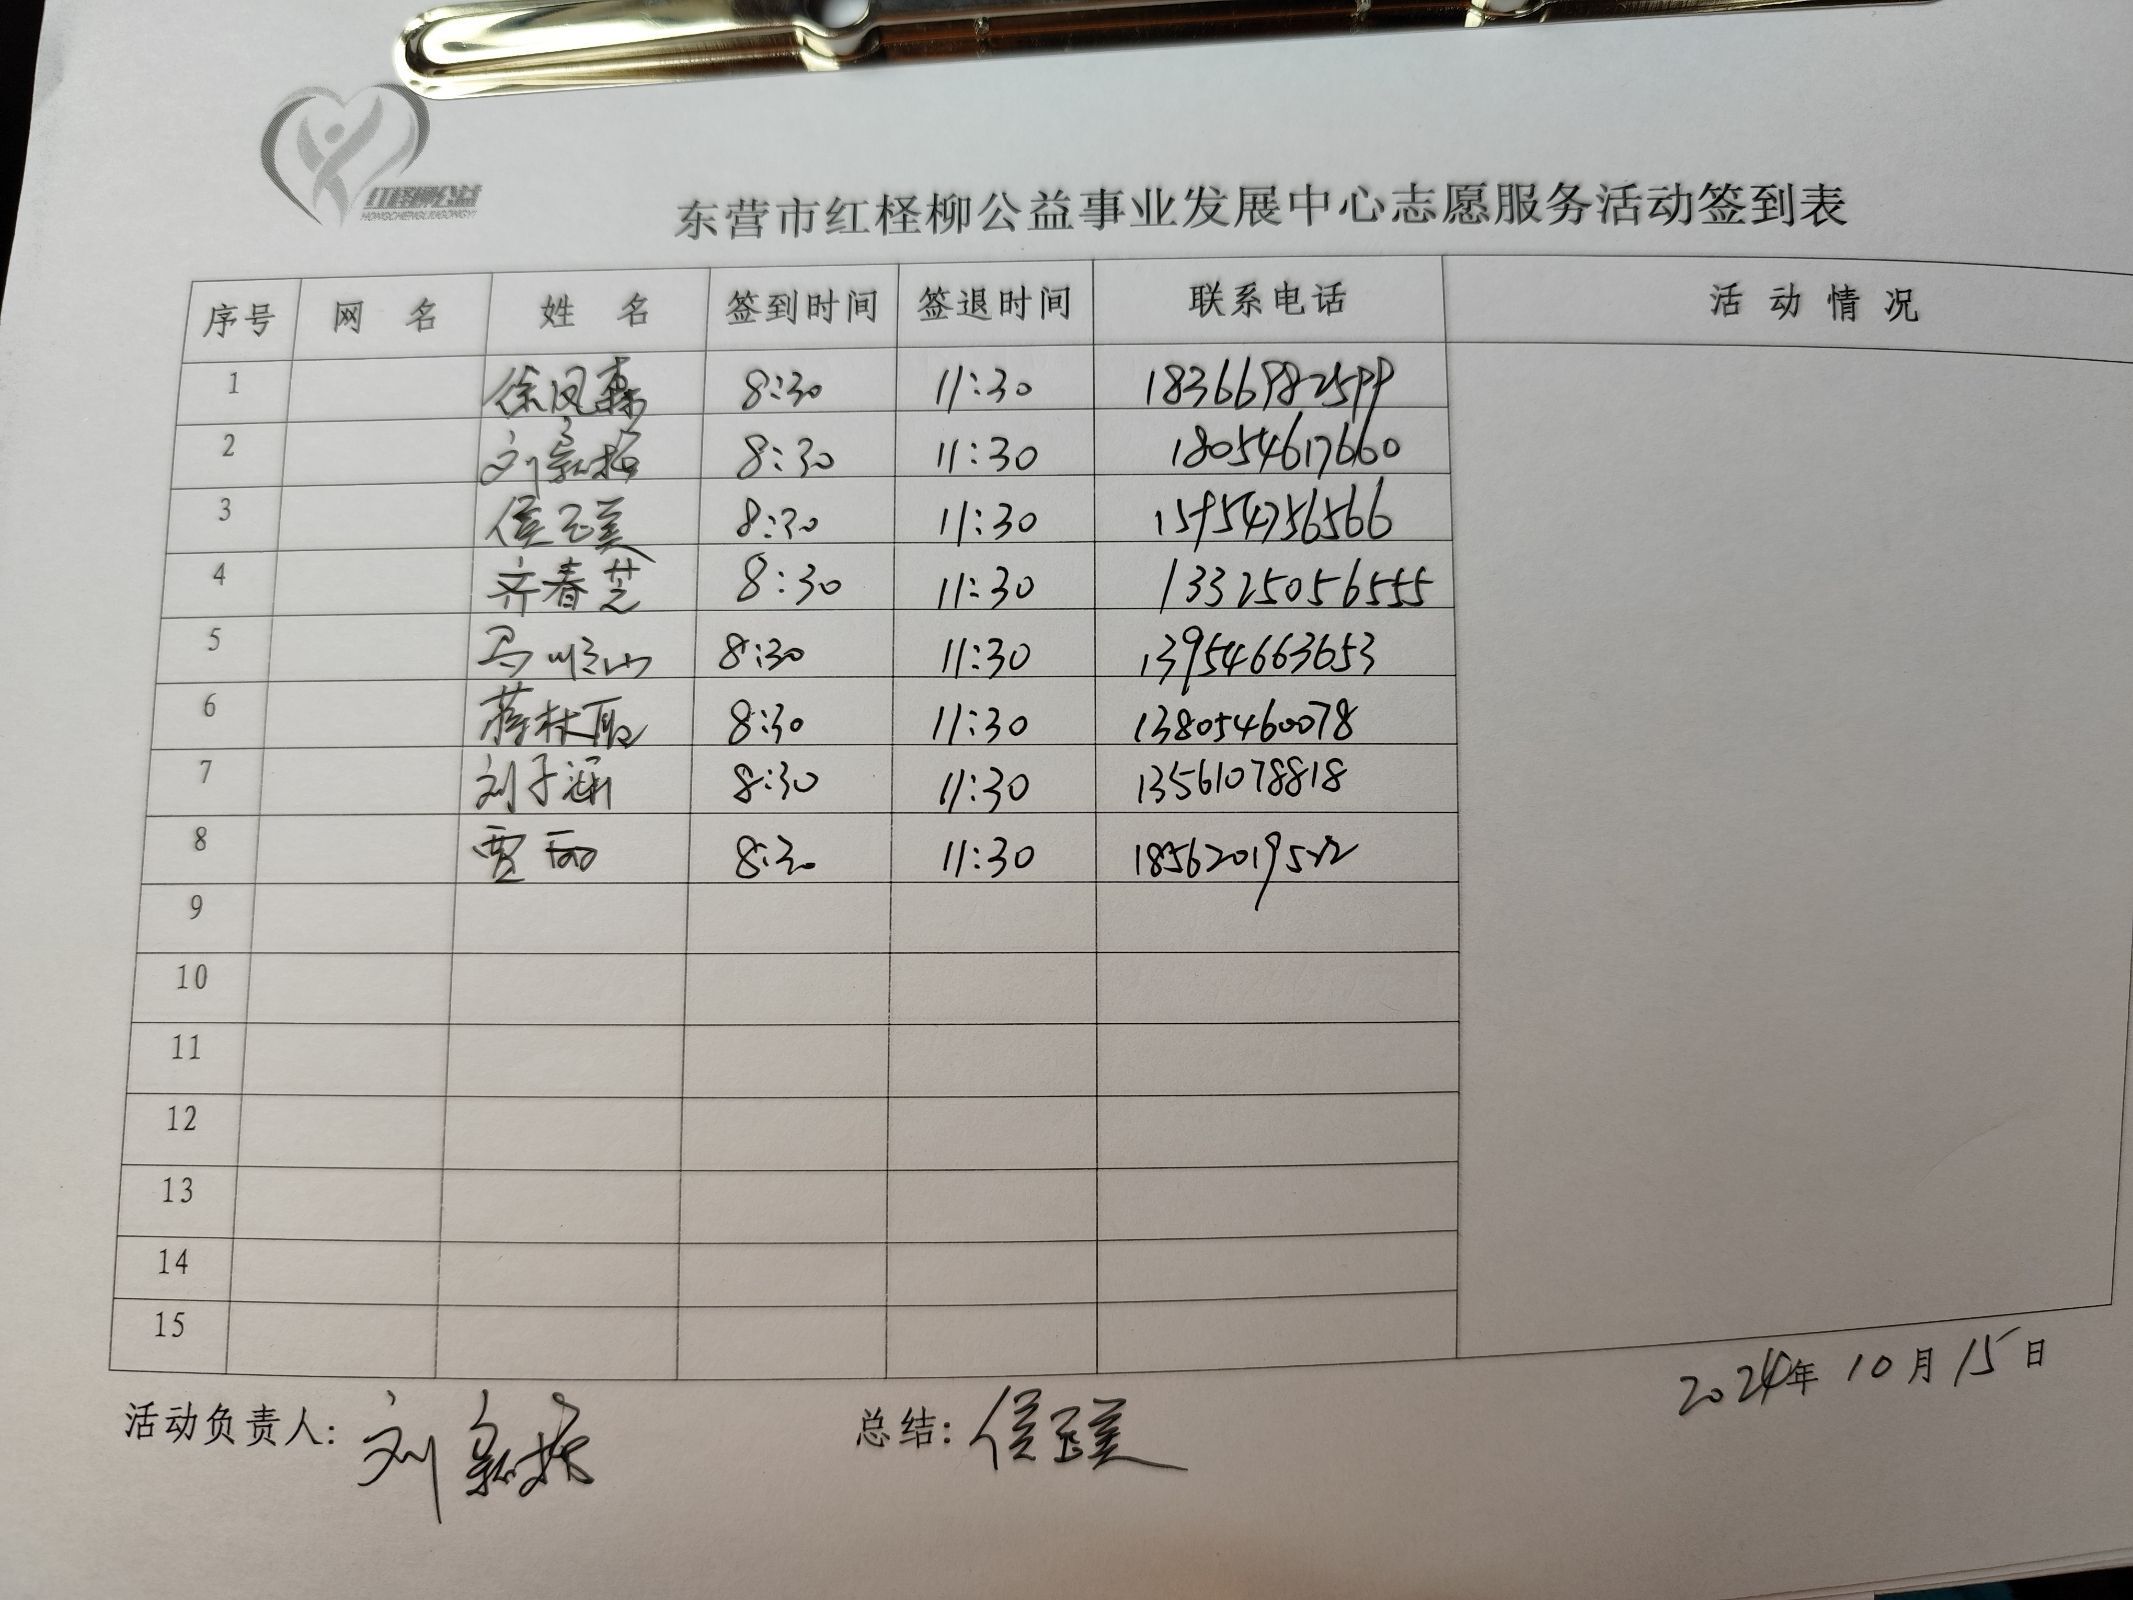 红柽柳公益
HONGCHENGLIUGONGYI
东营市红柽柳公益事业发展中心志愿服务活动签到表
序号 网 名 姓 名 签到时间 签退时间 联系电话 活动情况
1 徐凤森 8:30 11:30 18366982599
2 刘新 8:30 11:30 18054617660
3 侯玉美 8:30 11:30 15954756566
4 齐春芝 8:30 11:30 13325056555
5 马顺山 8:30 11:30 13954663653
6 蒋林 8:30 11:30 13805460078
7 刘子涵 8:30 11:30 13561078818
8 贾丽 8:30 11:30
9
10
11
12
13
14
15
2024年10月15日
活动负责人: 刘新 总结: 侯玉美